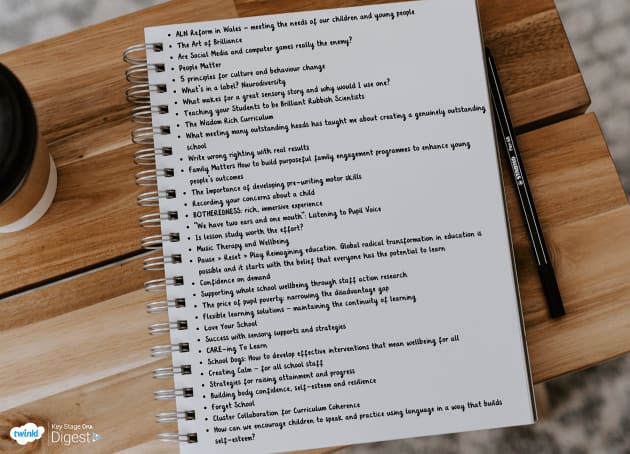 • ALN Reform in Wales – meeting the needs of our children and young people
• The Art of Brilliance
• Are Social Media and computer games really the enemy?
• People Matter
• 5 principles for culture and behaviour change
• What's in a label? Neurodiversity
• What makes for a great sensory story and why would I use one?
• Teaching your Students to be Brilliant Rubbish Scientists
• The Wisdom Rich Curriculum
• What meeting many outstanding heads has taught me about creating a genuinely outstanding
school
• Write wrong righting with real results
• Family Matters How to build purposeful family engagement programmes to enhance young
people's outcomes
• The Importance of developing pre-writing motor skills
• Recording your concerns about a child
• BOTHEREDNESS: rich, immersive experience
• "We have two ears and one mouth": Listening to Pupil Voice
• Is lesson study worth the effort?
• Music Therapy and Wellbeing
• Pause > Reset > Play Reimagining education. Global radical transformation in education is
possible and it starts with the belief that everyone has the potential to learn
• Confidence on demand
• Supporting whole school wellbeing through staff action research
• The price of pupil poverty: narrowing the disadvantage gap
• Flexible learning solutions – maintaining the continuity of learning
• Love Your School
• Success with sensory supports and strategies
• CARE-ing To Learn
• School Dogs: How to develop effective interventions that mean wellbeing for all
• Creating Calm – for all school staff
• Strategies for raising attainment and progress
• Building body confidence, self-esteem and resilience
• Forget School
• Cluster Collaboration for Curriculum Coherence
• How can we encourage children to speak and practice using language in a way that builds
self-esteem?
STABILO
twinkl
Key Stage One
Digest